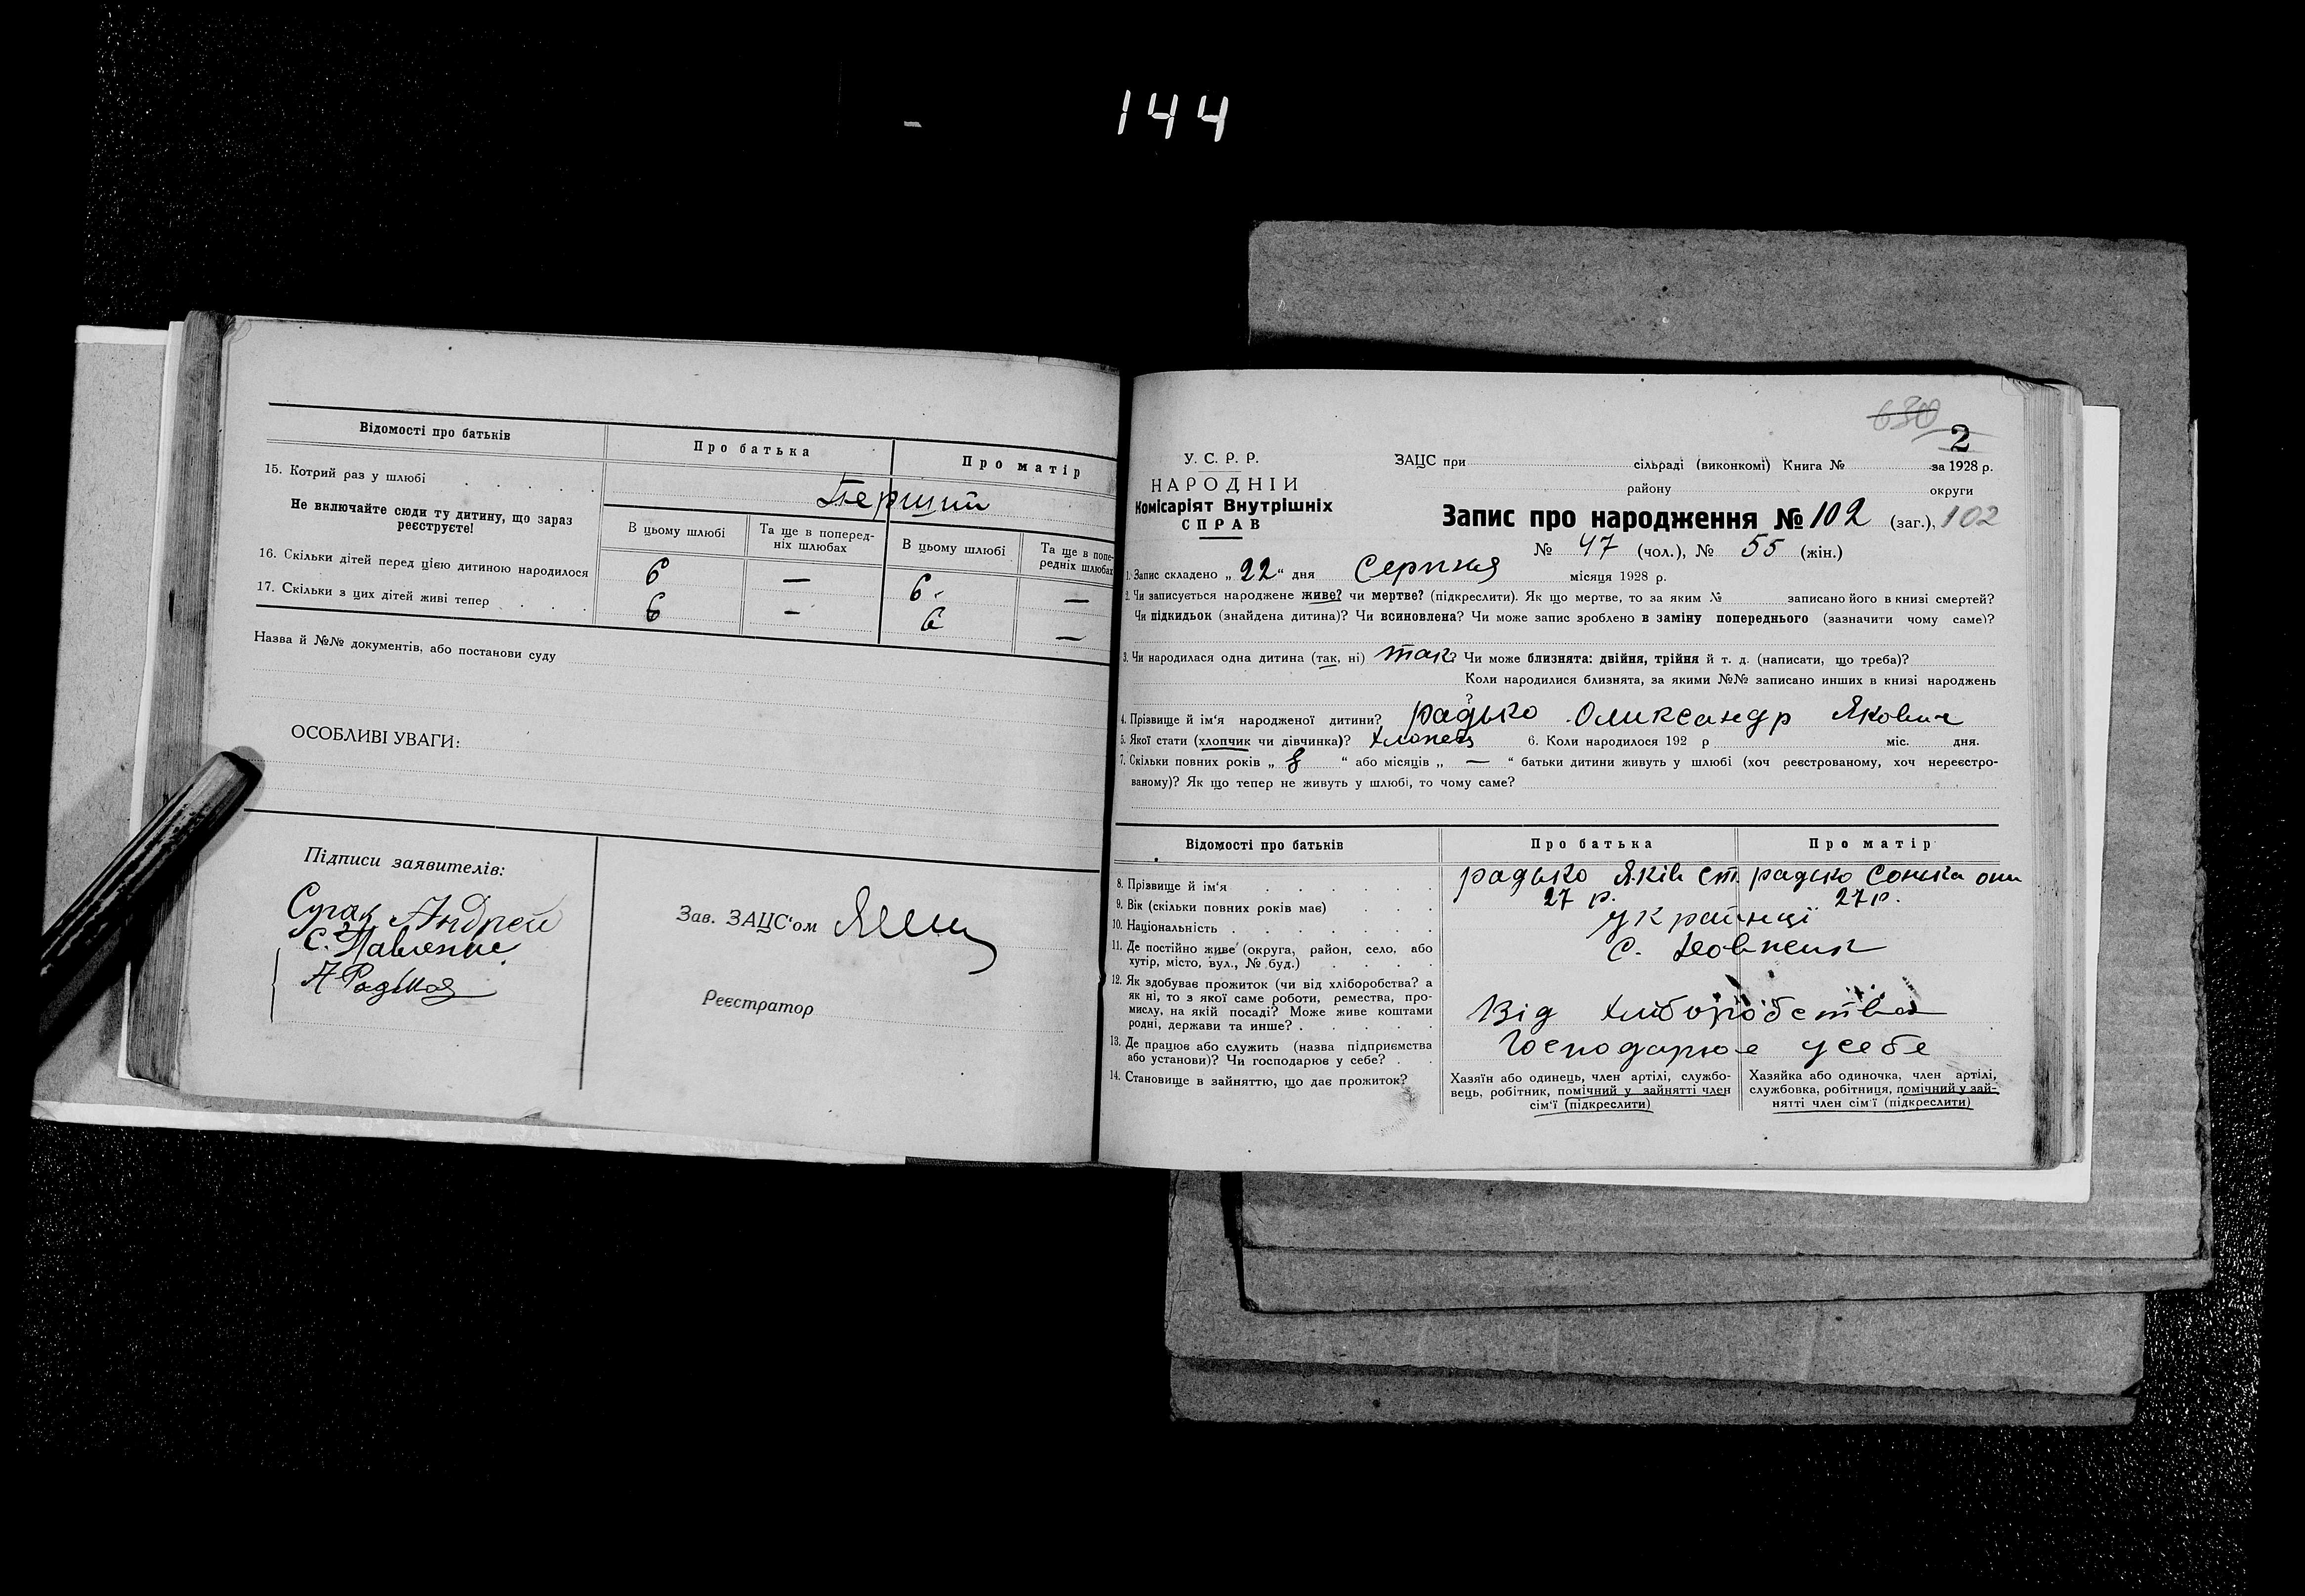 144
Відомості про батьків
Про батька
Про матір
15. Котрий раз у шлюбі
Перший
Не включайте сюди ту дитину, що зараз
реєструєте!
В цьому шлюбі
Та ще в поперед-
ніх шлюбах
В цьому шлюбі
Та ще в попе-
редніх шлюбах
16. Скільки дітей перед цією дитиною народилося 6 — 6 —
17. Скільки з цих дітей живі тепер 6 — 6 —
Назва й №№ документів, або постанови суду
ОСОБЛИВІ УВАГИ:
Підписи заявителів:
Андрей
С. Павленко
Зав. ЗАЦС'ом
Реєстратор
630
2
У. С. Р. Р.
НАРОДНІЙ
Комісаріят Внутрішніх
СПРАВ
ЗАЦС при сільраді (виконкомі) Книга № за 1928 р.
району округи
Запис про народження № 102 (заг.), 102
№ 47 (чол.), № 55 (жін.)
1. Запис складено „ 22 “ дня Серпня місяця 1928 р.
2. Чи записується народжене живе? чи мертве? (підкреслити). Як що мертве, то за яким № записано його в книзі смертей?
Чи підкидьок (знайдена дитина)? Чи всиновлена? Чи може запис зроблено в заміну попереднього (зазначити чому саме)?
3. Чи народилася одна дитина (так, ні) так? Чи може близнята: двійня, трійня й т. д. (написати, що треба)?
Коли народилися близнята, за якими №№ записано инших в книзі народжень
?
4. Прізвище й ім'я народженої дитини? радько Олександр Якович
5. Якої стати (хлопчик чи дівчинка)? хлопець 6. Коли народилося 192 р міс. дня.
7. Скільки повних років „ 8 “ або місяців „ — “ батьки дитини живуть у шлюбі (хоч реєстрованому, хоч нереєстро-
ваному)? Як що тепер не живуть у шлюбі, то чому саме?
Відомості про батьків
Про батька
Про матір
8. Прізвище й ім'я радько Яків ст. радько Сонька
9. Вік (скільки повних років має) 27 р. 27 р.
10. Національність українці
11. Де постійно живе (округа, район, село, або
хутір, місто, вул., № буд.)
с.
12. Як здобуває прожиток (чи від хліборобства? а
як ні, то з якої саме роботи, ремества, про-
мислу, на якій посаді? Може живе коштами
родні, держави та инше?
Від хліборобства
13. Де працює або служить (назва підприємства
або установи)? Чи господарює у себе?
Господарює усебе
14. Становище в зайняттю, що дає прожиток?
Хазяїн або одинець, член артілі, службо-
вець, робітник, помічний у зайнятті член
сім'ї (підкреслити)
Хазяйка або одиночка, член артілі,
службовка, робітниця, помічний у зай-
нятті член сім'ї (підкреслити)